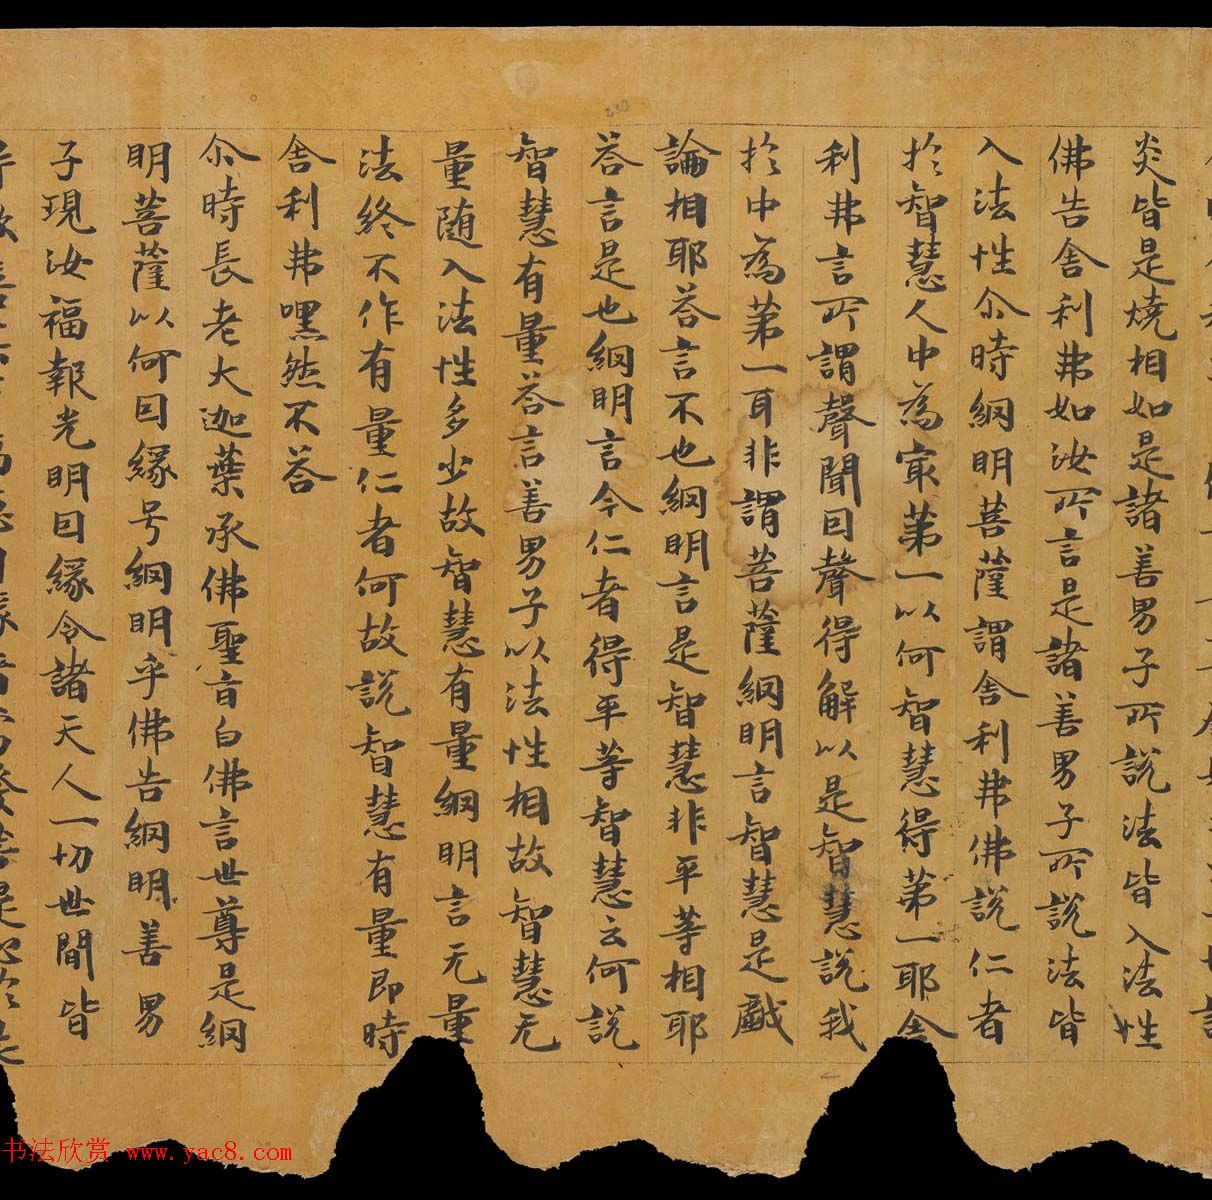 炎皆是燒相如是諸善男子所說法皆入法性
佛告舍利弗如汝所言是諸善男子所說法皆
入法性尒時網明菩薩謂舍利弗佛說仁者
於智慧人中為㝡第一以何智慧得第一耶舍
利弗言所謂聲聞因聲得解以是智慧說我
於中為第一耳非謂菩薩網明言智慧是戲
論相耶荅言不也網明言是智慧非平等相耶
荅言是也網明言今仁者得平等智慧云何說
智慧有量荅言善男子以法性相故智慧无
量随入法性多少故智慧有量網明言无量
法終不作有量仁者何故說智慧有量即時
舍利弗嘿然不荅
尒時長老大迦葉承佛聖旨白佛言世尊是網
明菩薩以何因緣号網明乎佛告網明善男
子現汝福報光明因緣令諸天人一切世間皆
书法欣赏 www.yac8.com